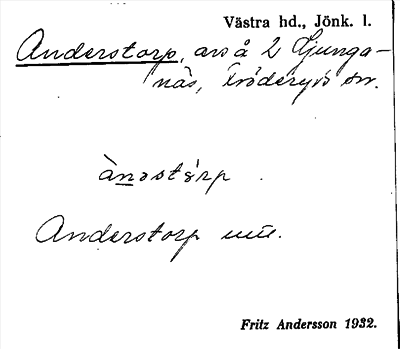 Västra hd., Jönk. l.
Anderstorp, avs å 2 Ljunga-
näs, Fröderyds sn.
ànəstórp
Anderstorp uu.
Fritz Andersson 1932.